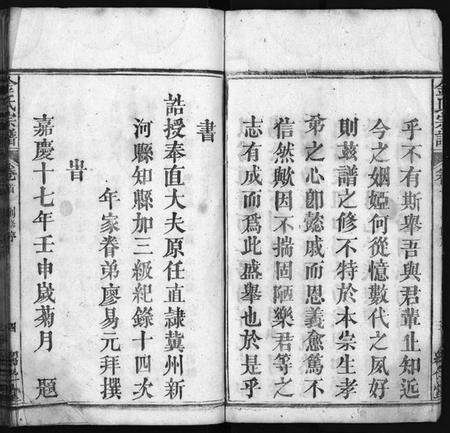 乎不有斯舉吾與君輩止知近
今之姻婭何從憶數代之夙好
則兹譜之修不特於本宗生孝
弟之心卽懿戚而恩義愈篤不
信然歟因不揣固陋樂君等之
志有成而爲此盛舉也於是乎
書
誥授奉直大夫原任直隸冀州新
河縣知縣加三級紀錄十四次
年家眷弟廖易元拜撰
旹
嘉慶十七年壬申嵗菊月 題
氏宗譜
卷首
四